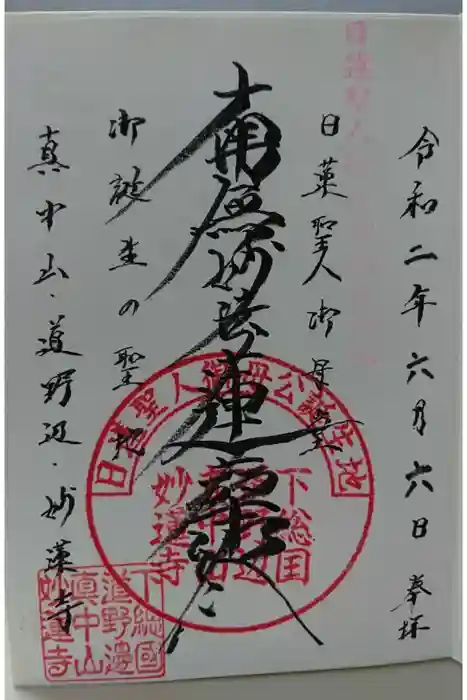 令和二年六月六日 奉拝
日蓮聖人御母堂
南無妙法蓮華経
御誕生の聖地
真中山・道野辺・妙蓮寺
日蓮聖人御母公誕生地
下総国
道野辺
真中山
妙蓮寺
下総國
道野邊
眞中山
妙蓮寺
日蓮聖人